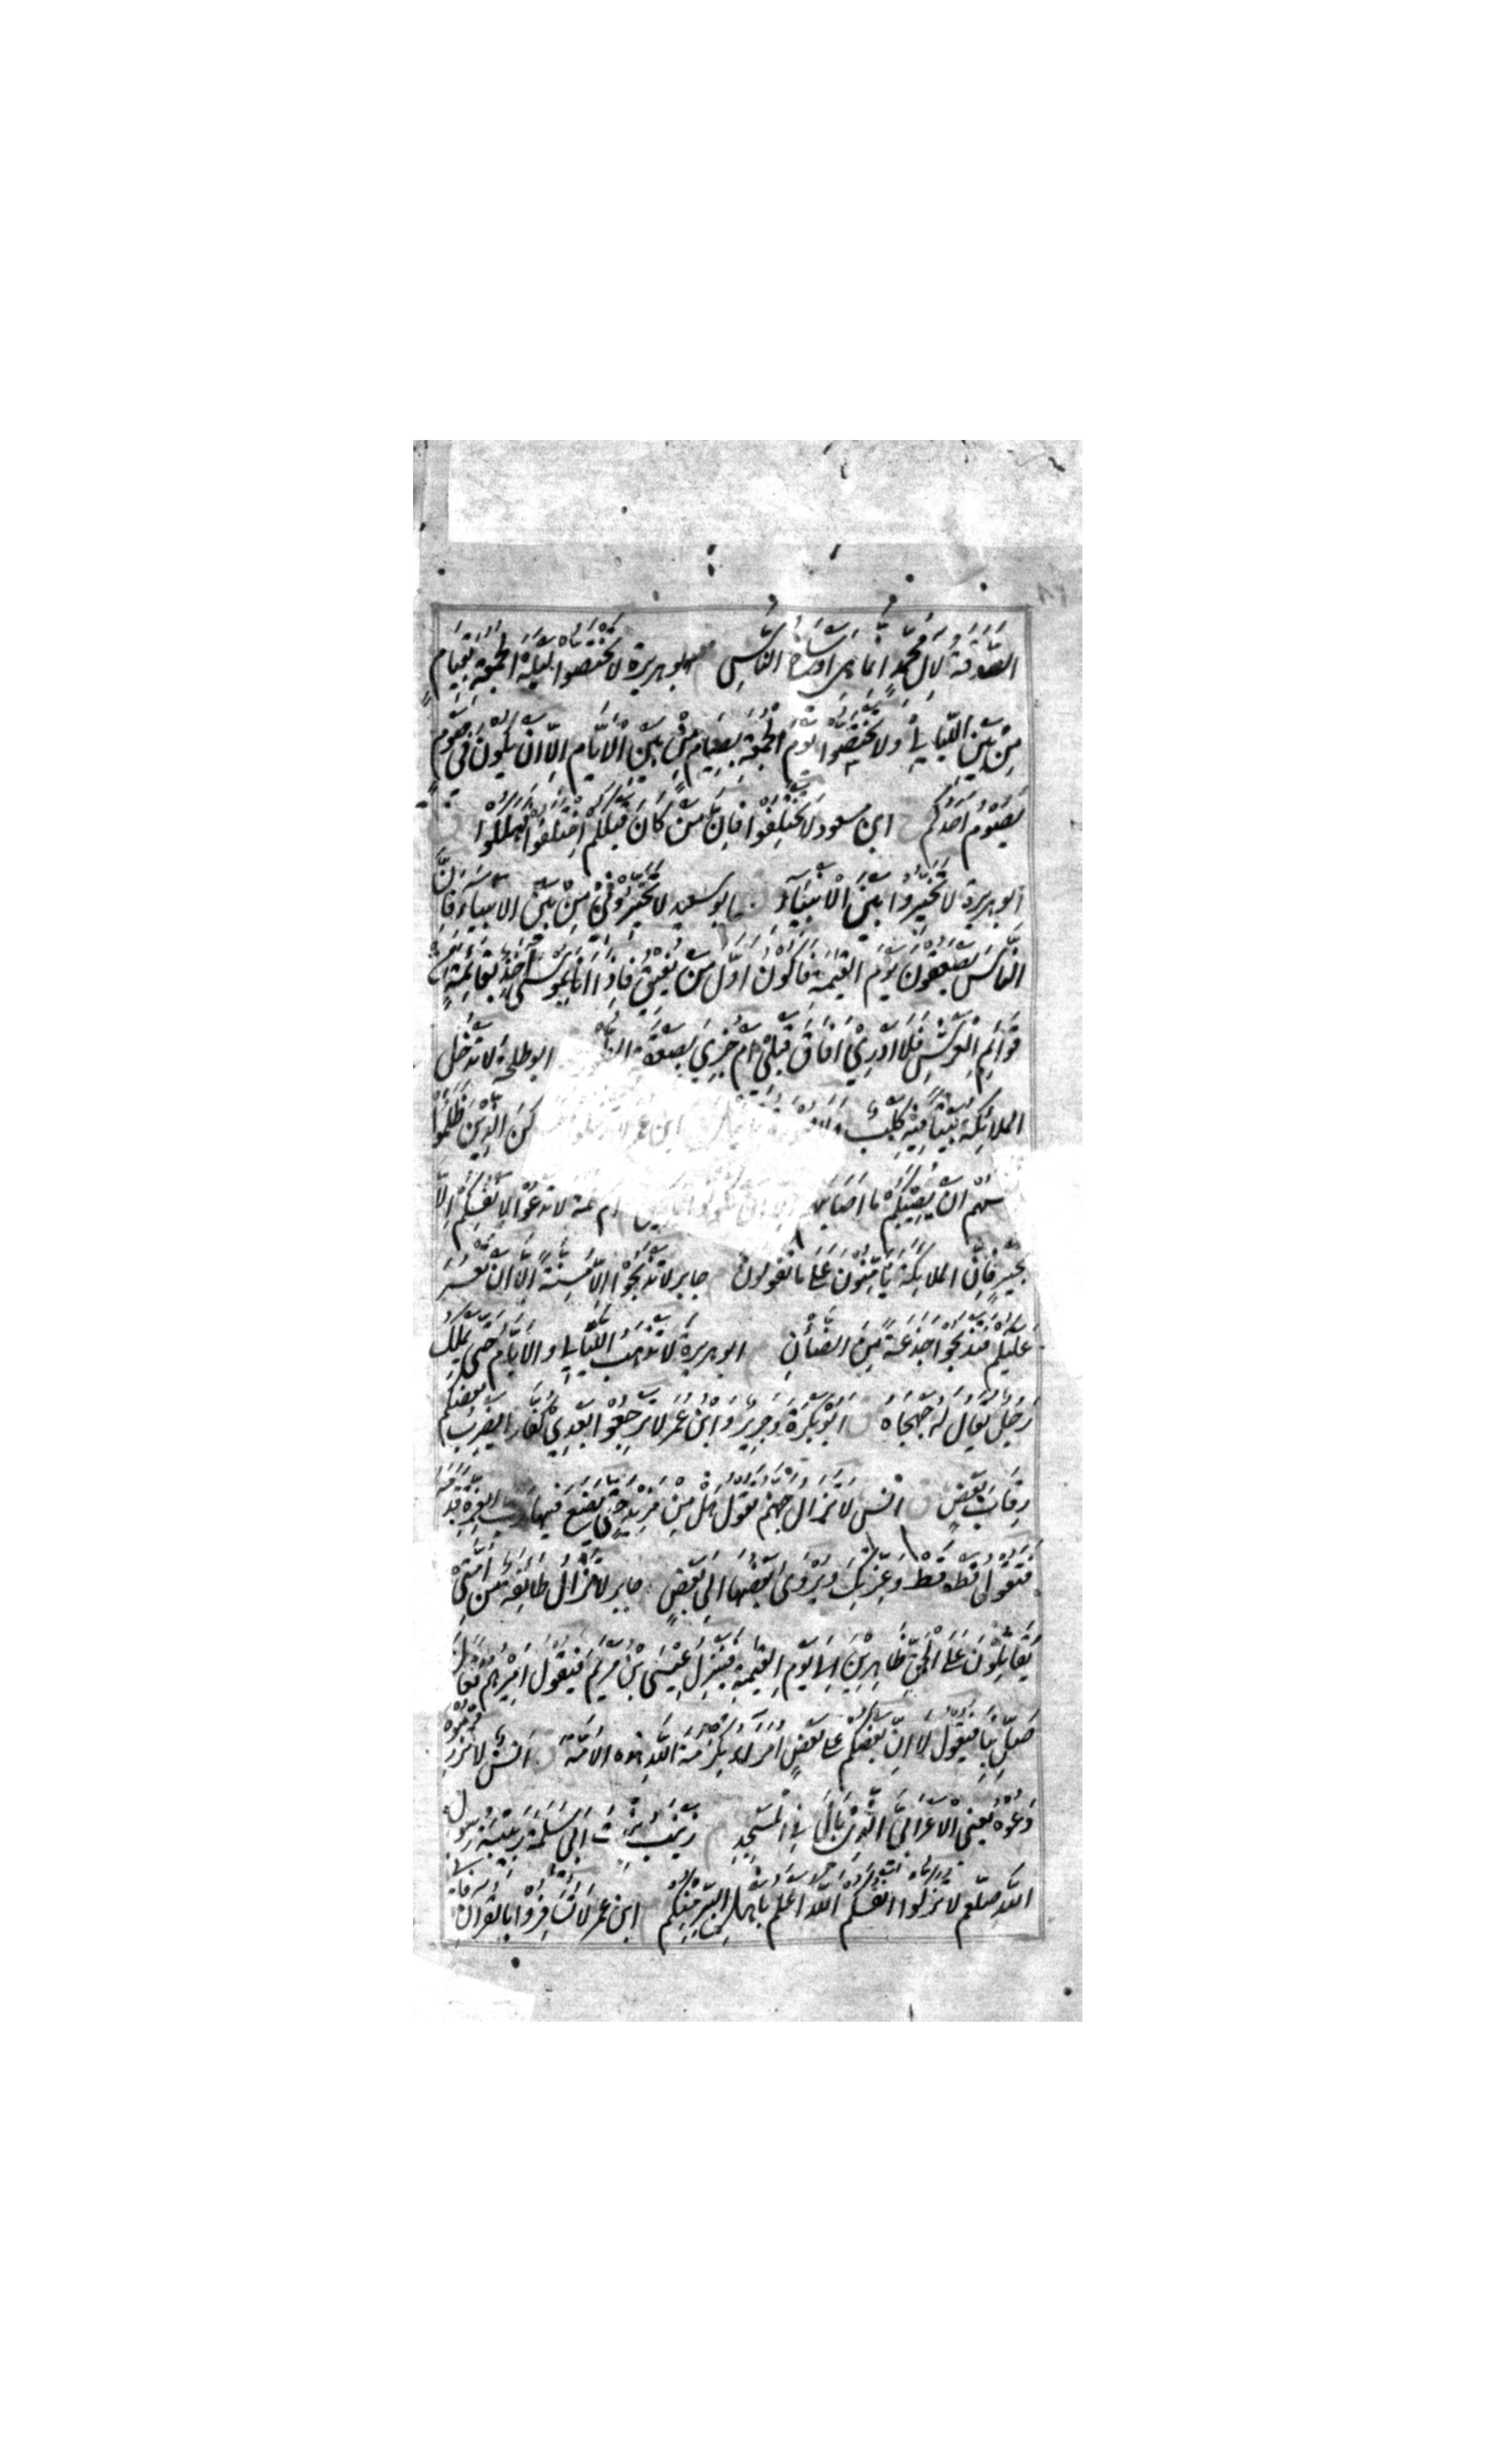 الصَّدَقَةُ لِآلِ مُحَمَّدٍ اِنَّمَا هِيَ اَوْسَاخُ النَّاسِ ابو هريرة لَا تَخْتَصُّوا لَيْلَةَ الْجُمُعَةِ بِقِيَامٍ
مِنْ بَيْنِ اللَّيَالِيْ وَلَا تَخْتَصُّوا يَوْمَ الْجُمُعَةِ بِصِيَامٍ مِنْ بَيْنِ الْاَيَّامِ اِلَّا اَنْ يَكُوْنَ فِيْ صَوْمٍ
يَصُوْمُ اَحَدُكُمْ ابن مسعود لَا تَخْتَلِفُوْا فَاِنَّ مَنْ كَانَ قَبْلَكُمْ اخْتَلَفُوْا فَهَلَكُوْا
ابو هريرة لَا تُخَيِّرُوْا بَيْنَ الْاَنْبِيَآءِ ابو سعيد لَا تُخَيِّرُوْنِيْ مِنْ بَيْنِ الْاَنْبِيَاءِ فَاِنَّ
النَّاسَ يَصْعَقُوْنَ يَوْمَ الْقِيٰمَةِ فَاَكُوْنُ اَوَّلَ مَنْ يُفِيْقُ فَاِذَا اَنَا بِمُوْسٰى اٰخِذٌ بِقَائِمَةٍ مِنْ
قَوَائِمِ الْعَرْشِ فَلَا اَدْرِيْ اَفَاقَ قَبْلِيْ اَمْ جُزِيَ بِصَعْقَةِ ابو طلحة لَا تَدْخُلُ
الْمَلَائِكَةُ بَيْتًا فِيْهِ كَلْبٌ وَلَا ابن عمر الَّذِيْنَ ظَلَمُوْا
اَنْ يُصِيْبَكُمْ مَا اَصَابَهُمْ لَا تَدْعُوْا لِاَنْفُسِكُمْ اِلَّا
بِخَيْرٍ فَاِنَّ الْمَلَائِكَةَ يُؤَمِّنُوْنَ عَلٰى مَا تَقُوْلُوْنَ جابر لَا تَذْبَحُوْا اِلَّا مُسِنَّةً اِلَّا اَنْ تَعْسُرَ
عَلَيْكُمْ فَتَذْبَحُوْا جَذَعَةً مِنَ الضَّأْنِ ابو هريرة لَا تَذْهَبُ اللَّيَالِيْ وَالْاَيَّامُ حَتّٰى يَمْلِكَ
رَجُلٌ يُقَالُ لَهُ جَهْجَاهُ ق اَبُوْ بَكْرَةَ وَجَرِيْرٌ وَابْنُ عُمَرَ لَا تَرْجِعُوْا بَعْدِيْ كُفَّارًا يَضْرِبُ بَعْضُكُمْ
رِقَابَ بَعْضٍ ق انس لَا تَزَالُ جَهَنَّمُ تَقُوْلُ هَلْ مِنْ مَزِيْدٍ حَتّٰى يَضَعَ فِيْهَا رَبُّ الْعِزَّةِ قَدَمَهُ
فَتَقُوْلُ قَطْ قَطْ وَعِزَّتِكَ وَيُزْوٰى بَعْضُهَا اِلٰى بَعْضٍ جابر لَا تَزَالُ طَائِفَةٌ مِنْ اُمَّتِيْ
يُقَاتِلُوْنَ عَلَى الْحَقِّ ظَاهِرِيْنَ اِلٰى يَوْمِ الْقِيٰمَةِ فَيَنْزِلُ عِيْسَى بْنُ مَرْيَمَ فَيَقُوْلُ اَمِيْرُهُمْ تَعَالَ
صَلِّ بِنَا فَيَقُوْلُ لَا اِنَّ بَعْضَكُمْ عَلٰى بَعْضٍ اُمَرَآءُ تَكْرِمَةَ اللّٰهِ هٰذِهِ الْاُمَّةَ ق انس لَا تُزْرِمُوْهُ
دَعُوْهُ يَعْنِي الْاَعْرَابِيَّ الَّذِيْ بَالَ فِي الْمَسْجِدِ م زَيْنَبُ بِنْتُ اَبِيْ سَلَمَةَ رَبِيْبَةُ رَسُوْلِ
اللّٰهِ صلعم لَا تُزَكُّوْا اَنْفُسَكُمْ اَللّٰهُ اَعْلَمُ بِاَهْلِ الْبِرِّ مِنْكُمْ ابن عمر لَا تُسَافِرُوْا بِالْقُرْاٰنِ